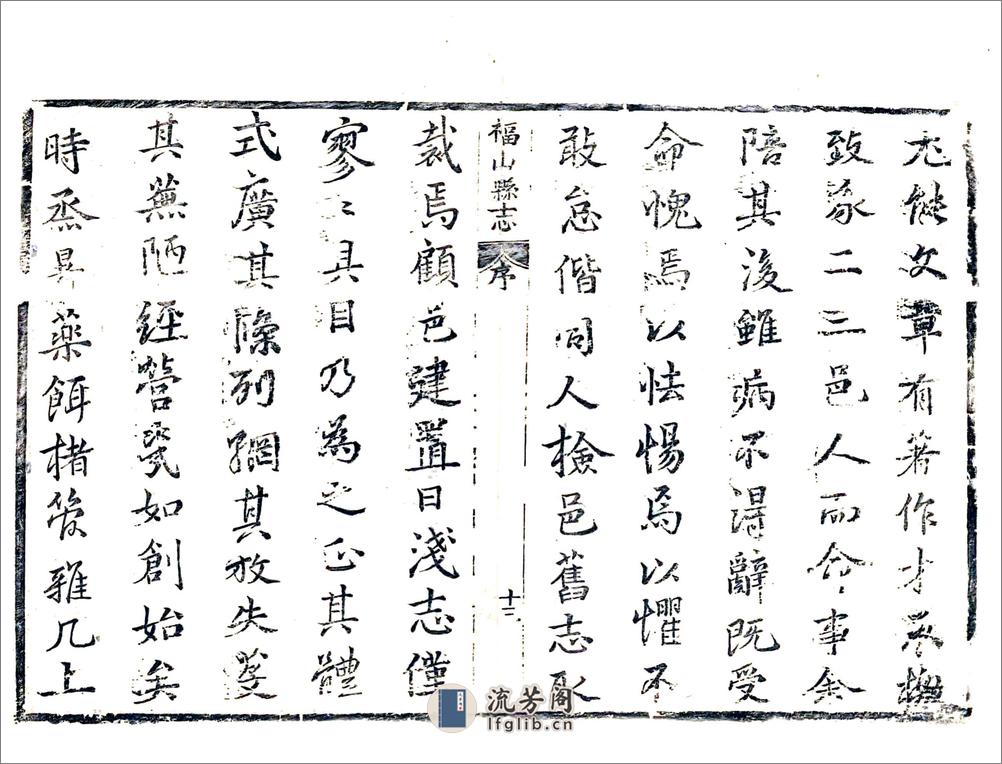 尤能文章有著作才承檄
致聚二三邑人而令事余
陪其後雖病不得辭既受
命愧焉以怯惕焉以懼不
敢怠偕同人檢邑舊志取
裁焉顧邑建置日淺志僅
福山縣志
序
十二
寥〻具目乃為之正其體
式廣其條列網其放失芟
其蕪陋經營甃如創始矣
時烝昇藥餌楮筆雜几上
流芳阁
lfglib.cn